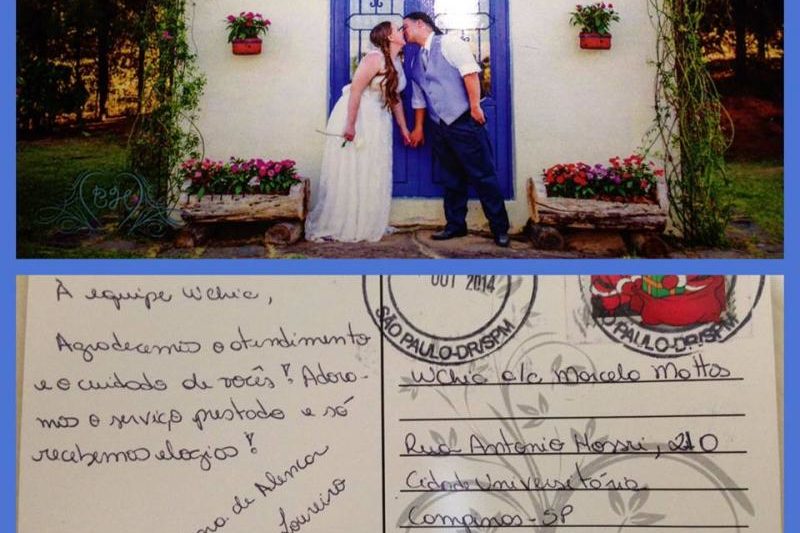 À equipe WChic,
Agradecemos o atendimento
e o cuidado de vocês! Adora-
mos o serviço prestado e só
recebemos elogios!
de Alencar
Loureiro
OUT 2014
SÃO PAULO-DR/SPM
SÃO PAULO-DR/SPM
WChic a/c Marcelo Mattos
Rua Antonio Hossri, 210
Cidade Universitária
Campinas-SP